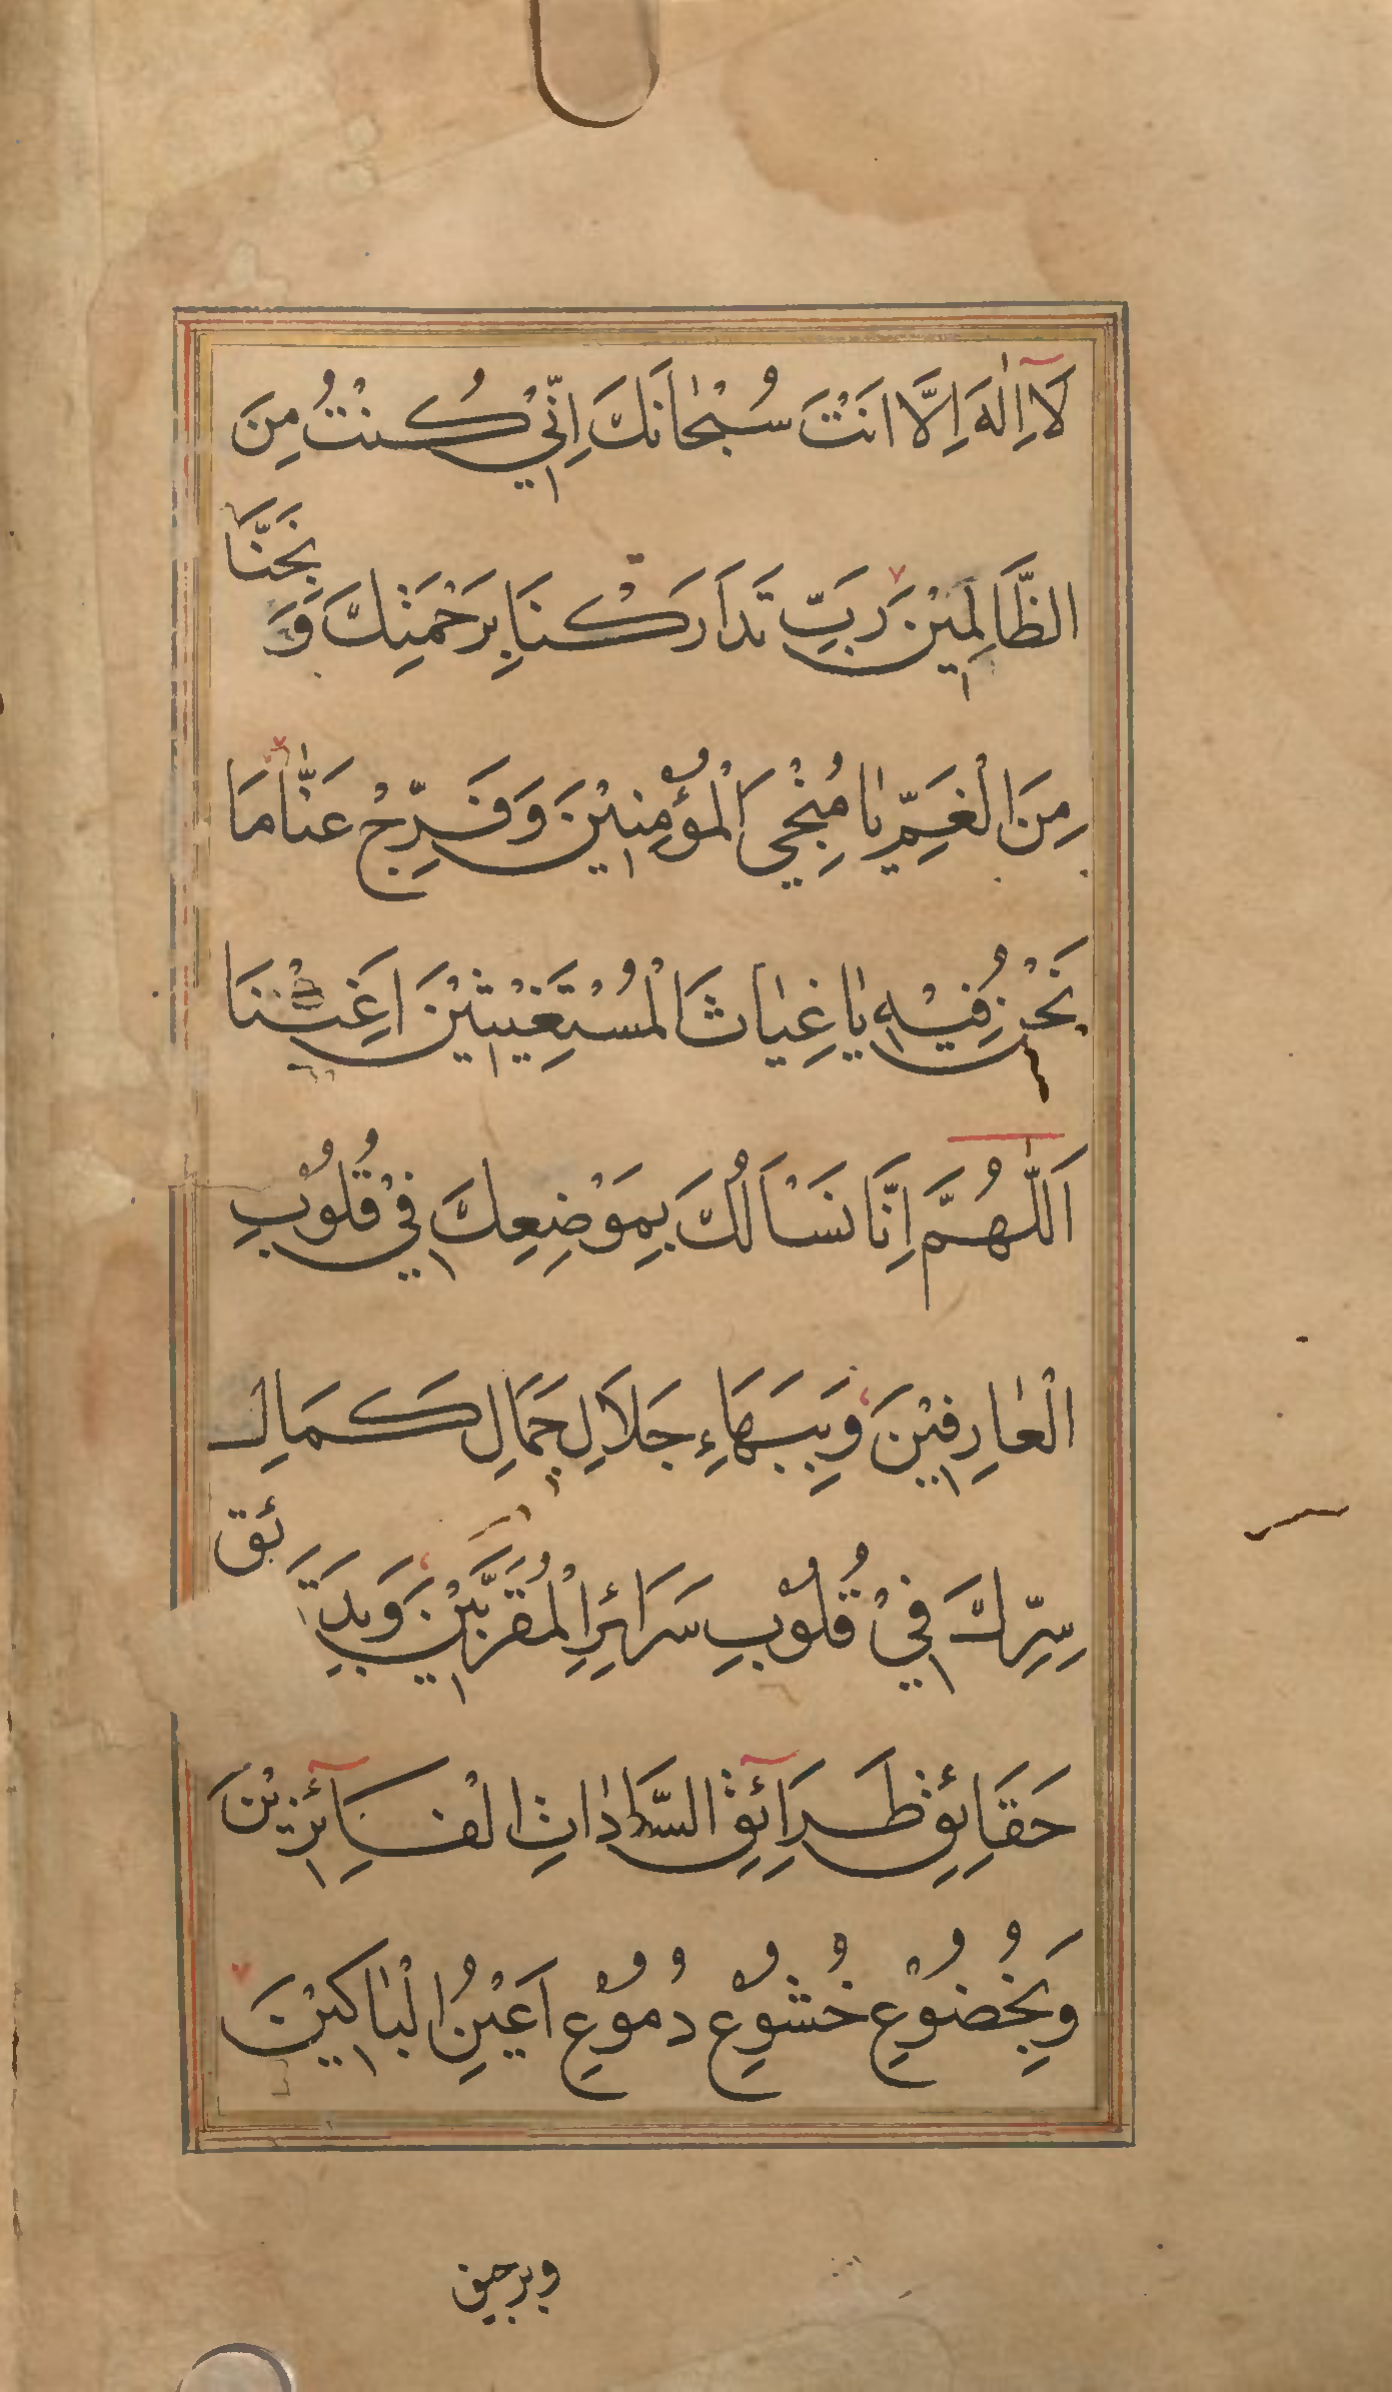 لَآ اِلٰهَ اِلَّا اَنْتَ سُبْحٰانَكَ اِنّٖيْ كُنْتُ مِنَ
الظَّالِمٖيْنَ رَبِّ تَدَارَكْنَا بِرَحْمَتِكَ وَ نَجِّنَا
مِنَ الْغَمِّ يٰا مُنْجِيَ الْمُؤْمِنٖيْنَ وَفَرِّجْ عَنّٰا مَا
نَحْنُ فٖيْهِ يٰا غِيٰاثَ الْمُسْتَغٖيْثٖيْنَ اَغِثْنَا
اَللّٰهُمَّ اِنَّا نَسْاَلُكَ بِمَوْضِعِكَ فٖيْ قُلُوْبِ
الْعٰارِفٖيْنَ وَبِبَهَاءِ جَلَالِ جَمَالِ كَمَالِ
سِرِّكَ فٖيْ قُلُوْبِ سَرَائِرِ الْمُقَرَّبٖيْنَ وَبِدَقَائق
حَقَائِقِ طَرَائِقِ السَّادٰاتِ الْفَآئِزٖيْنَ
وَبِخُضُوْعِ خُشُوْعِ دُمُوْعِ اَعْيُنِ الْبٰاكٖيْنَ
وبرجيف